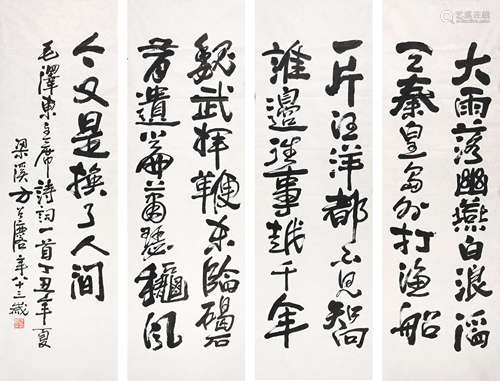 大雨落幽燕白浪滔
天秦皇島外打漁船
一片汪洋都不見知向
誰邊往事越千年
魏武揮鞭東臨碣
石有遺篇蕭瑟龝風
今又是換了人間
毛澤東主席詩詞一首丁丑年夏
梁溪方召麐年八十三歲